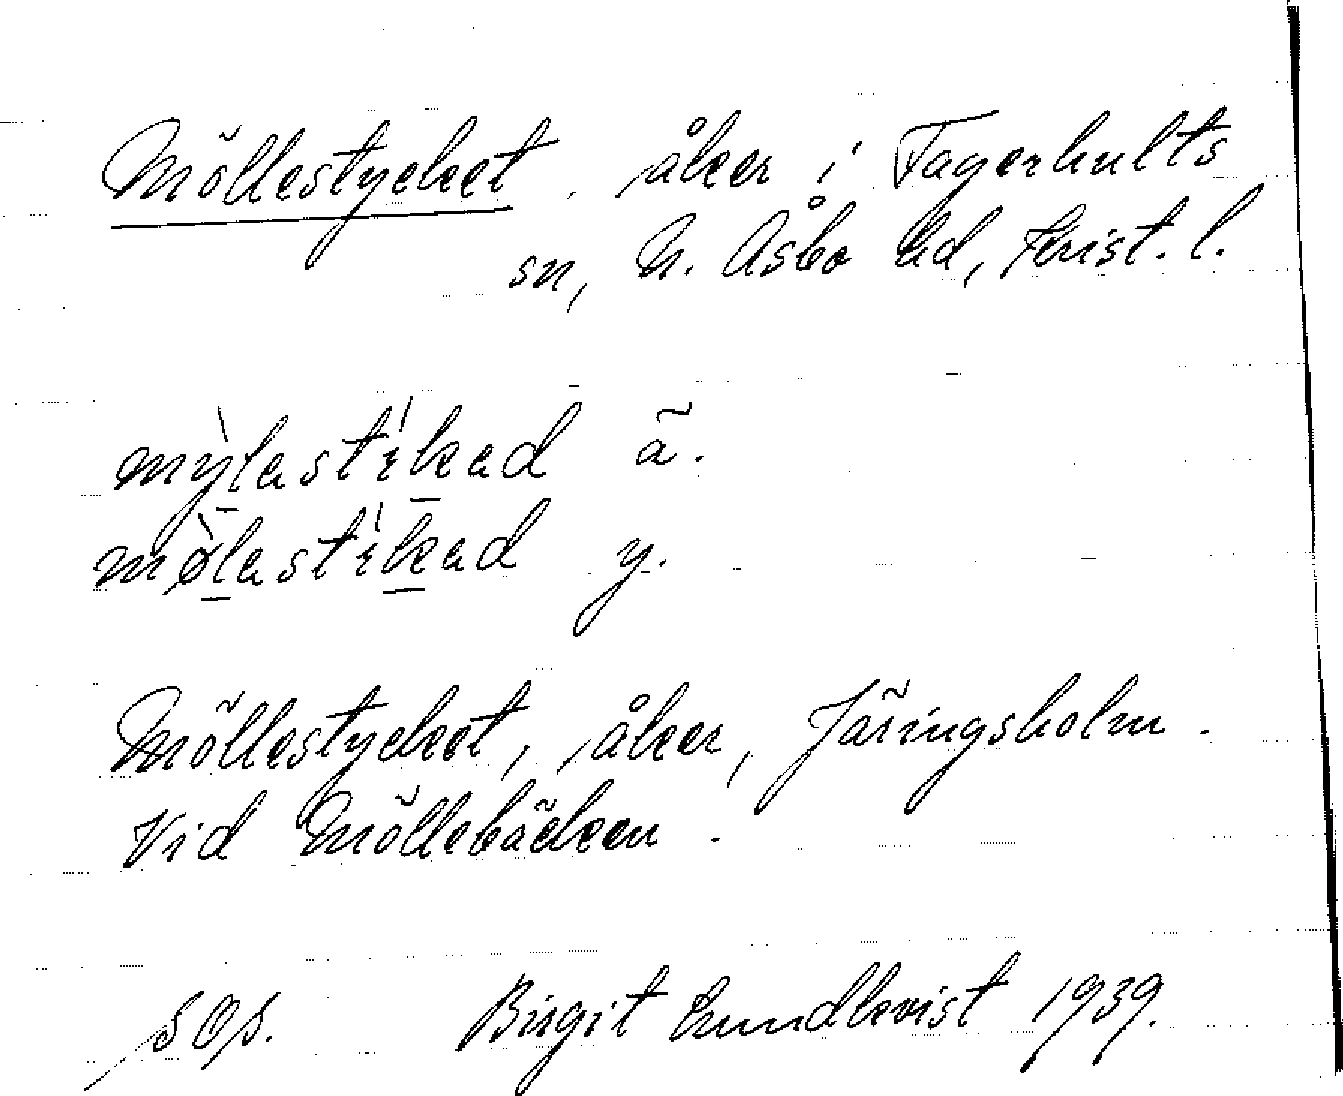 Möllestycket. åker i Fagerhults
sn, N. Åsbo hd, Krist. l.
mỳlastíkad ä.
mø̀lastíkad y.
Möllestycket, åker, Järingsholm.
Vid Möllebäcken.
SOS. Birgit Lundkvist 1939.